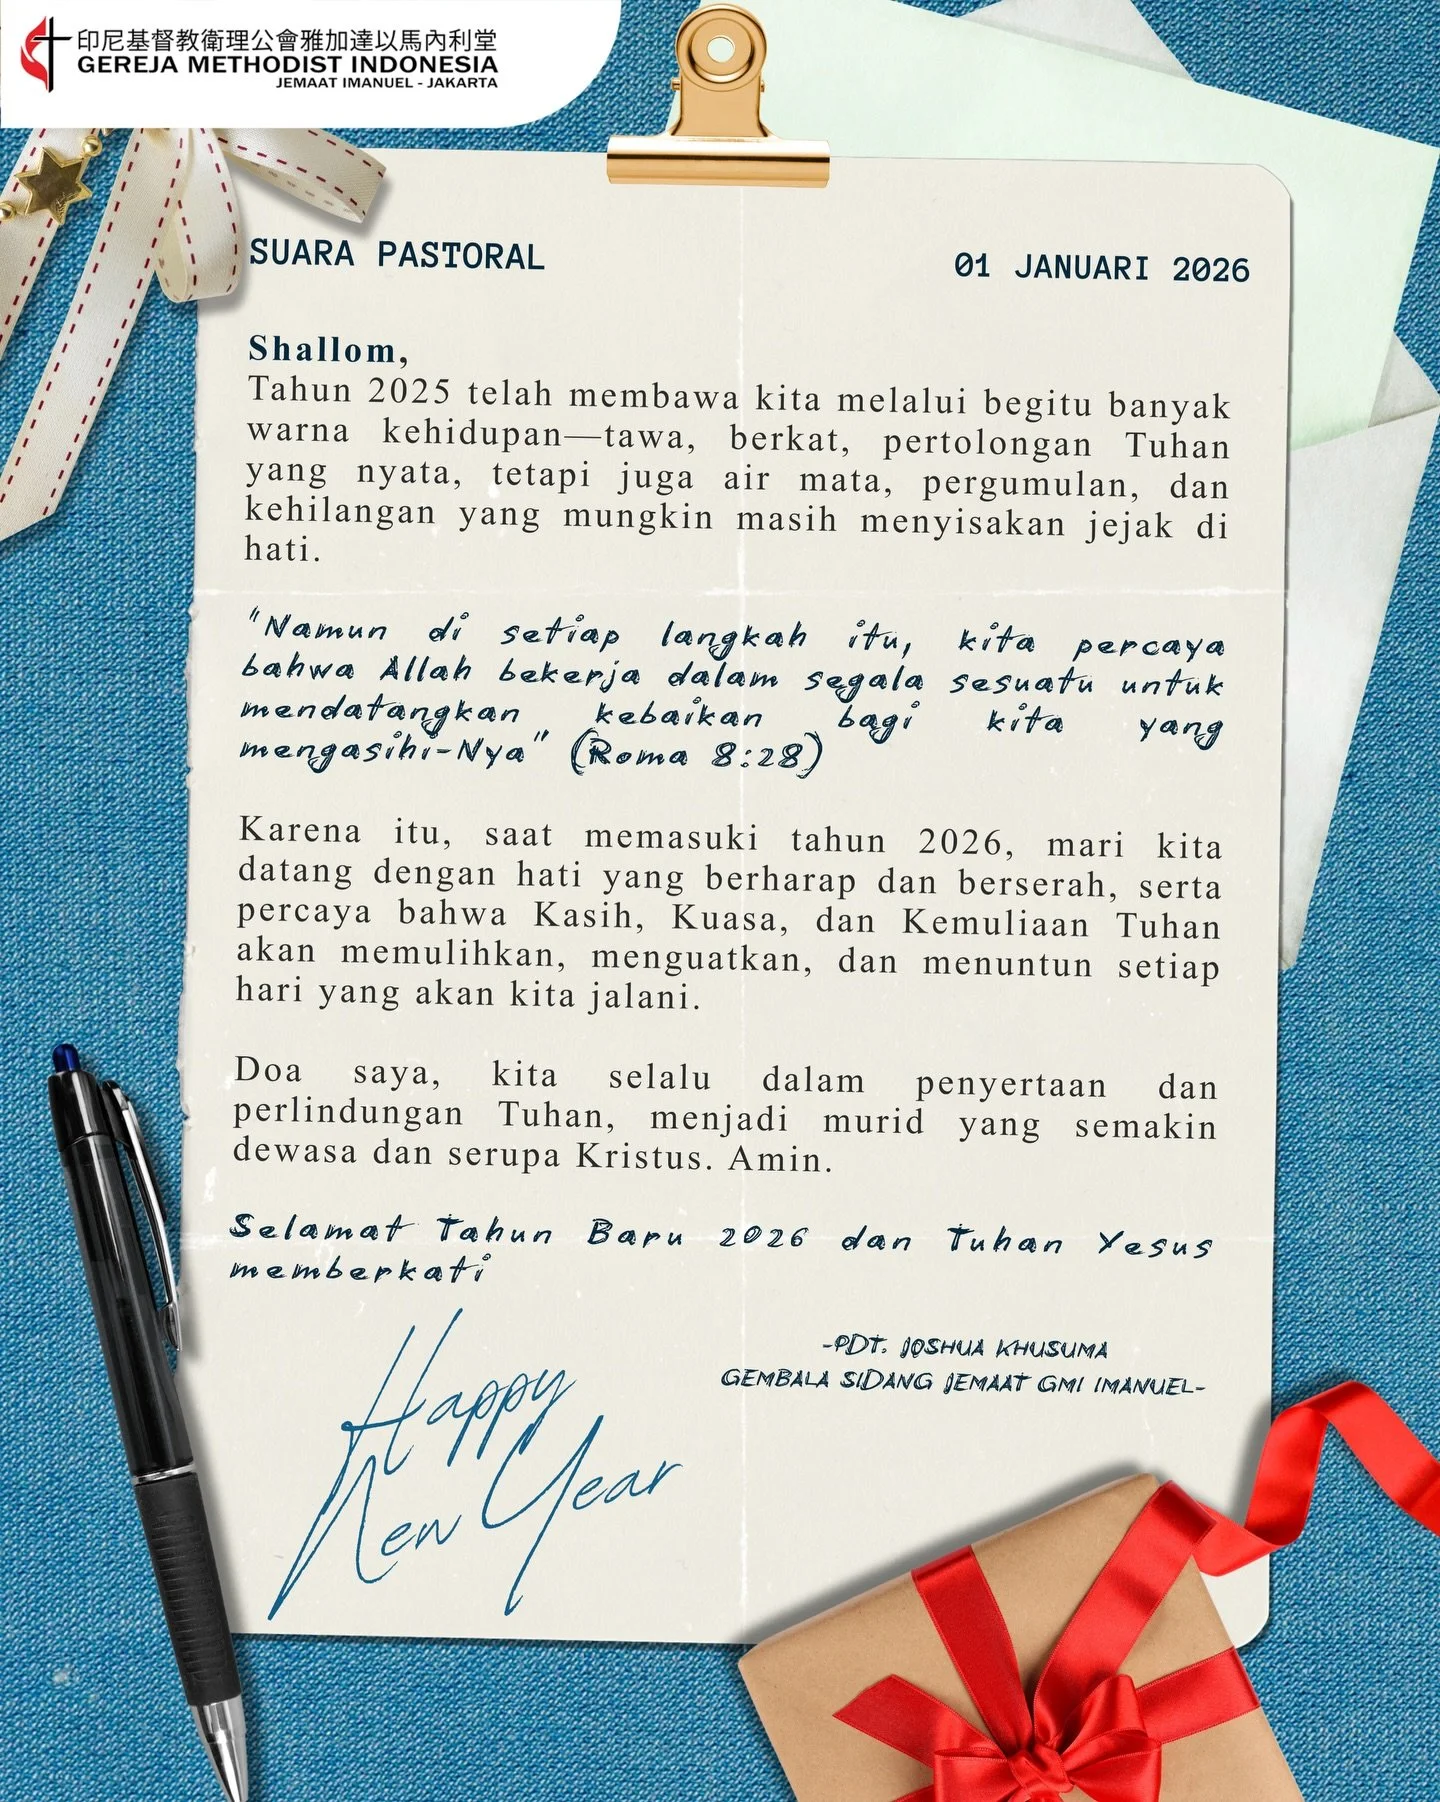 印尼基督教衛理公會雅加達以馬內利堂
GEREJA METHODIST INDONESIA
JEMAAT IMANUEL - JAKARTA
SUARA PASTORAL
01 JANUARI 2026
Shallom,
Tahun 2025 telah membawa kita melalui begitu banyak
warna kehidupan—tawa, berkat, pertolongan Tuhan
yang nyata, tetapi juga air mata, pergumulan, dan
kehilangan yang mungkin masih menyisakan jejak di
hati.
"Namun di setiap langkah itu, kita percaya
bahwa Allah bekerja dalam segala sesuatu untuk
mendatangkan kebaikan bagi kita yang
mengasihi-Nya" (Roma 8:28)
Karena itu, saat memasuki tahun 2026, mari kita
datang dengan hati yang berharap dan berserah, serta
percaya bahwa Kasih, Kuasa, dan Kemuliaan Tuhan
akan memulihkan, menguatkan, dan menuntun setiap
hari yang akan kita jalani.
Doa saya, kita selalu dalam penyertaan dan
perlindungan Tuhan, menjadi murid yang semakin
dewasa dan serupa Kristus. Amin.
Selamat Tahun Baru 2026 dan Tuhan Yesus
memberkati
-PDT. JOSHUA KHUSUMA
GEMBALA SIDANG JEMAAT GMI IMANUEL-
Happy
New Year